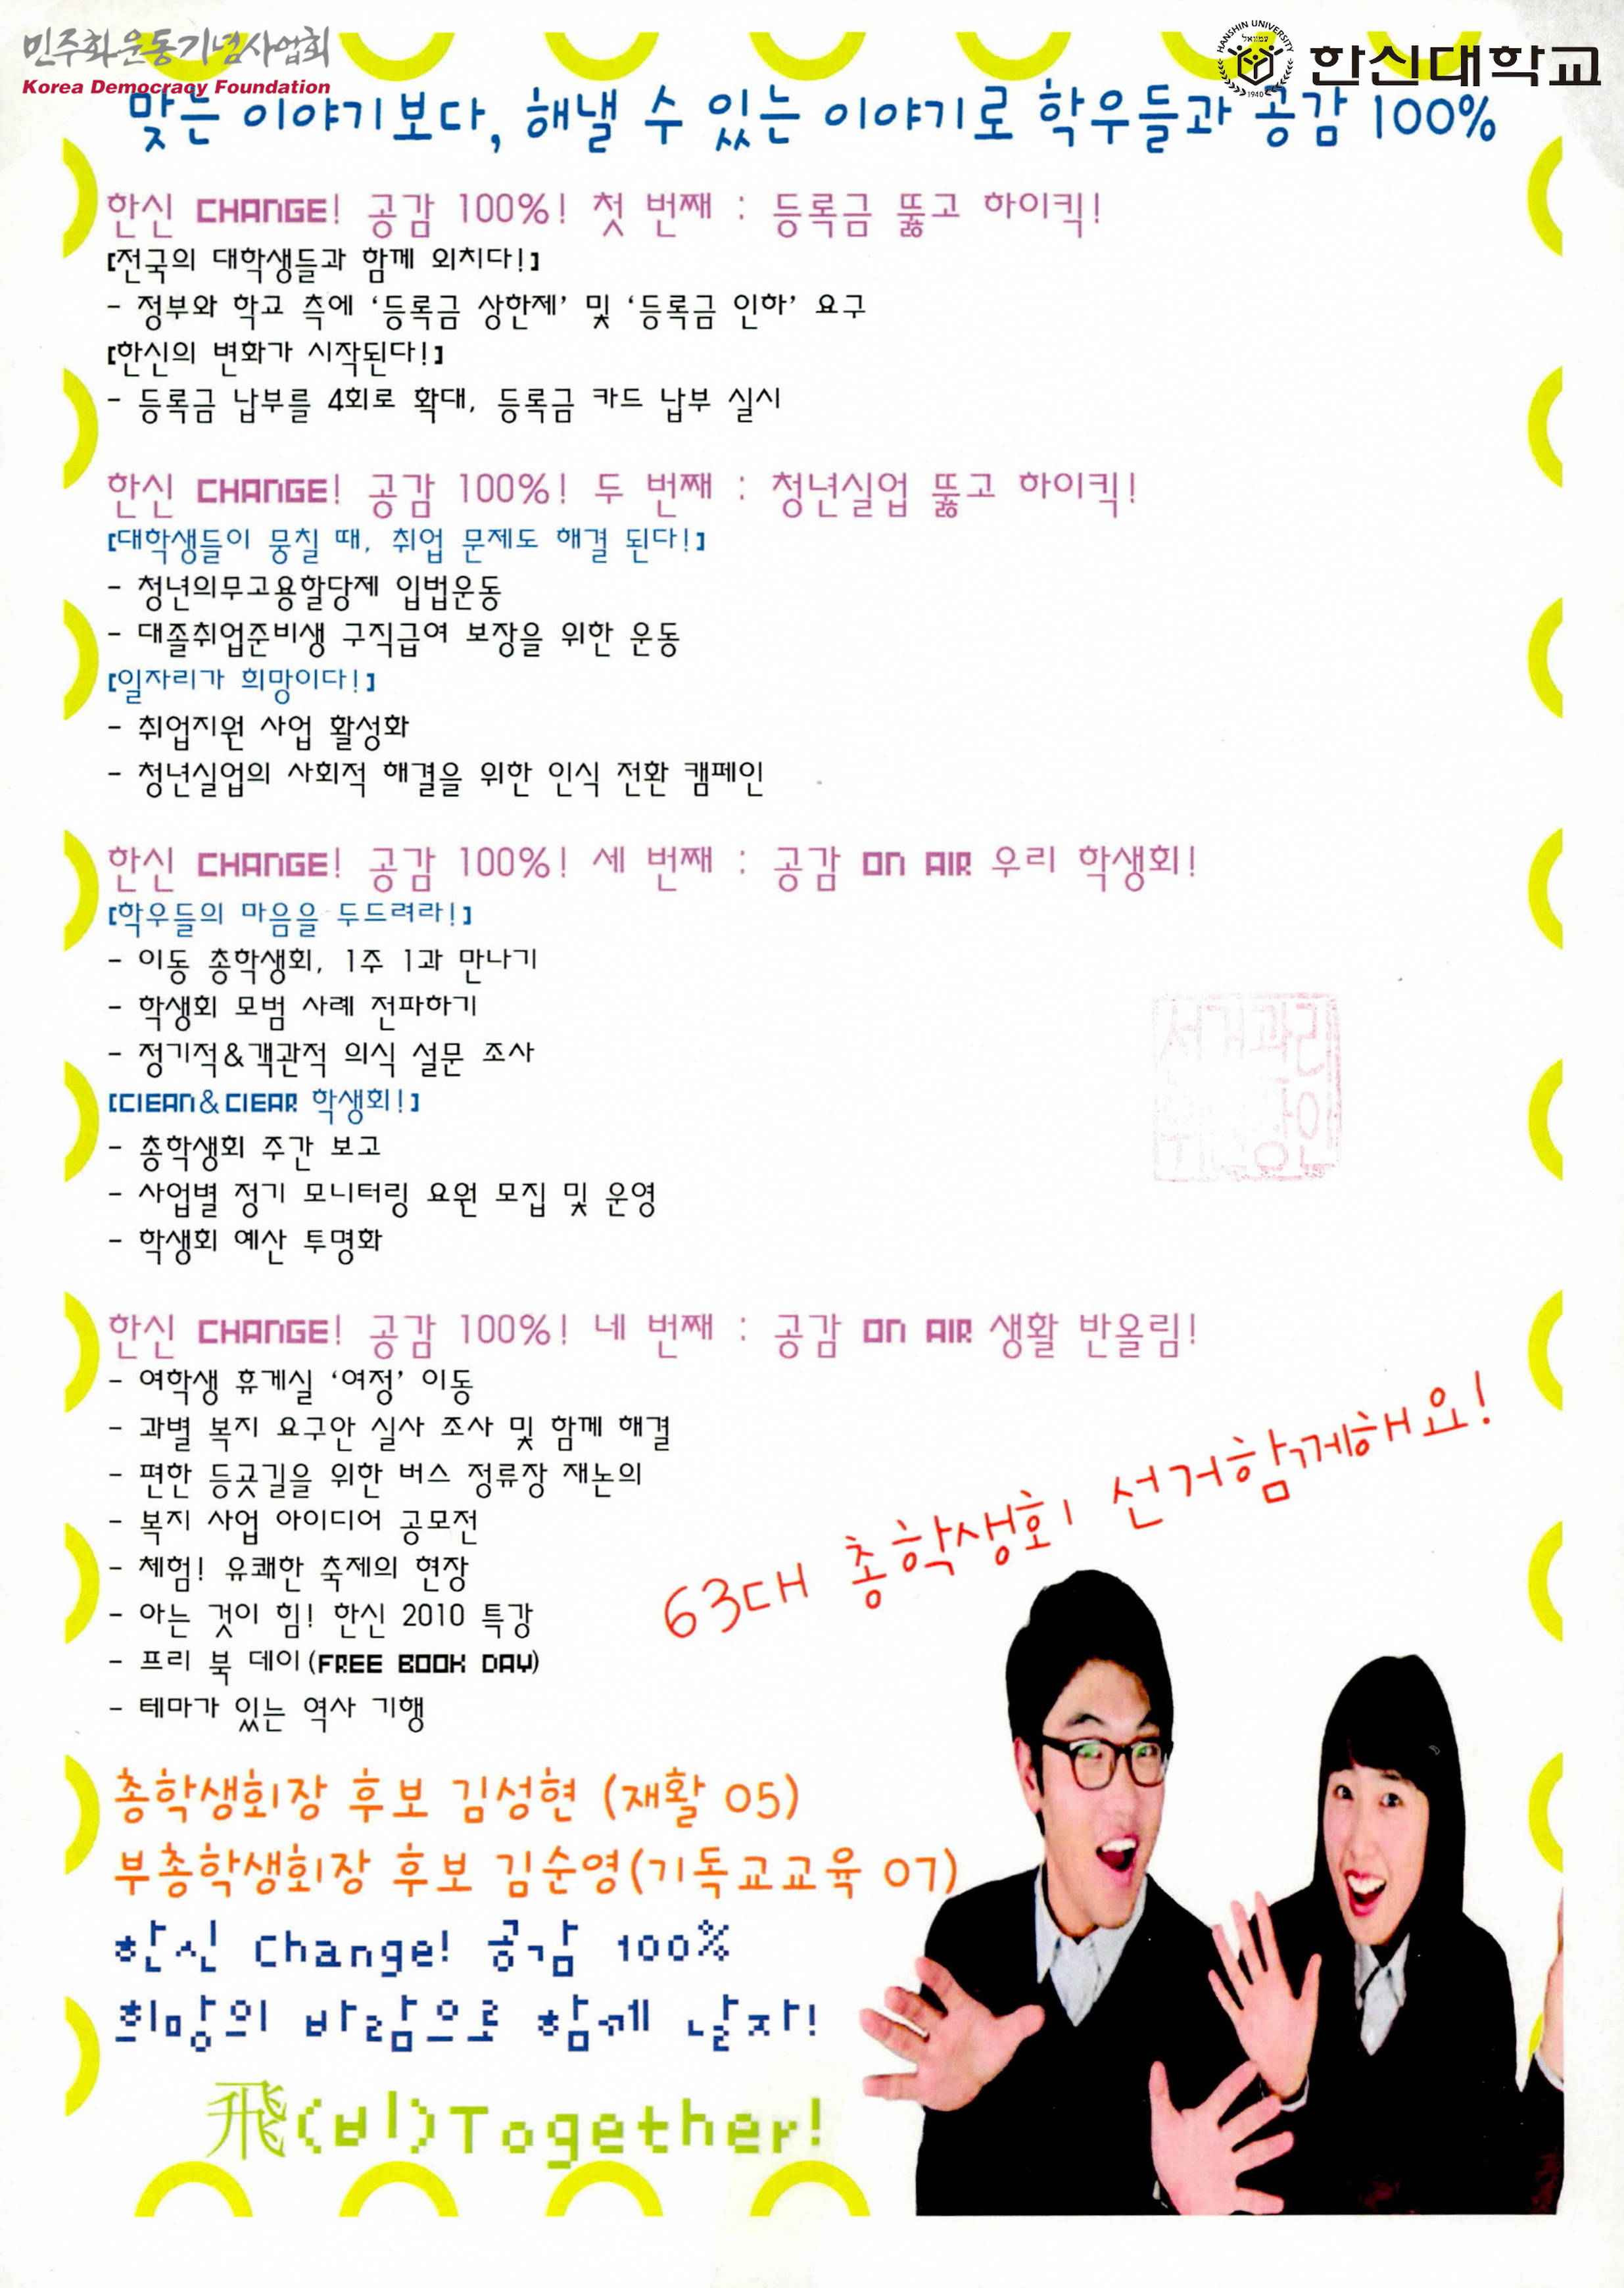 민주화운동기념사업회
Korea Democracy Foundation
HANSHIN UNIVERSITY
1940
한신대학교
맞는 이야기보다, 해낼 수 있는 이야기로 학우들과 공감 100%
한신 CHANGE! 공감 100%! 첫 번째 : 등록금 뚫고 하이킥!
[전국의 대학생들과 함께 외치다!]
- 정부와 학교 측에 ‘등록금 상한제’ 및 ‘등록금 인하’ 요구
[한신의 변화가 시작된다!]
- 등록금 납부를 4회로 확대, 등록금 카드 납부 실시
한신 CHANGE! 공감 100%! 두 번째 : 청년실업 뚫고 하이킥!
[대학생들이 뭉칠 때, 취업 문제도 해결 된다!]
- 청년의무고용할당제 입법운동
- 대졸취업준비생 구직급여 보장을 위한 운동
[일자리가 희망이다!]
- 취업지원 사업 활성화
- 청년실업의 사회적 해결을 위한 인식 전환 캠페인
한신 CHANGE! 공감 100%! 세 번째 : 공감 ON AIR 우리 학생회!
[학우들의 마음을 두드려라!]
- 이동 총학생회, 1주 1과 만나기
- 학생회 모범 사례 전파하기
- 정기적&객관적 의식 설문 조사
[CLEAN&CLEAR 학생회!]
- 총학생회 주간 보고
- 사업별 정기 모니터링 요원 모집 및 운영
- 학생회 예산 투명화
한신 CHANGE! 공감 100%! 네 번째 : 공감 ON AIR 생활 반올림!
- 여학생 휴게실 ‘여정’ 이동
- 과별 복지 요구안 실사 조사 및 함께 해결
- 편한 등굣길을 위한 버스 정류장 재논의
- 복지 사업 아이디어 공모전
- 체험! 유쾌한 축제의 현장
- 아는 것이 힘! 한신 2010 특강
- 프리 북 데이(FREE BOOK DAY)
- 테마가 있는 역사 기행
63대 총학생회 선거함께해요!
총학생회장 후보 김성현 (재활 05)
부총학생회장 후보 김순영(기독교교육 07)
한신 Change! 공감 100%
희망의 바람으로 함께 날자!
飛(비)Together!